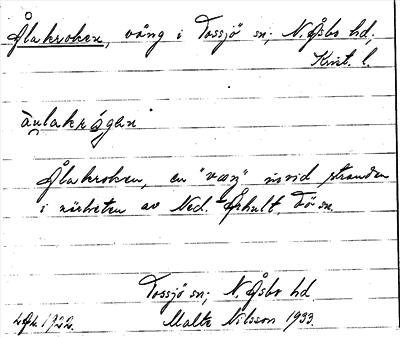 Ålakroken, vång i Tossjö sn; N. Åsbo hd.
Krist. l.
åu̯lakrǫ́gen
Ålakroken, en "væŋ" invid stranden
i närheten av Ned. Ekhult, Tö sn
Tossjö sn; N. Åsbo hd.
1922. Malte Nilsson 1933.